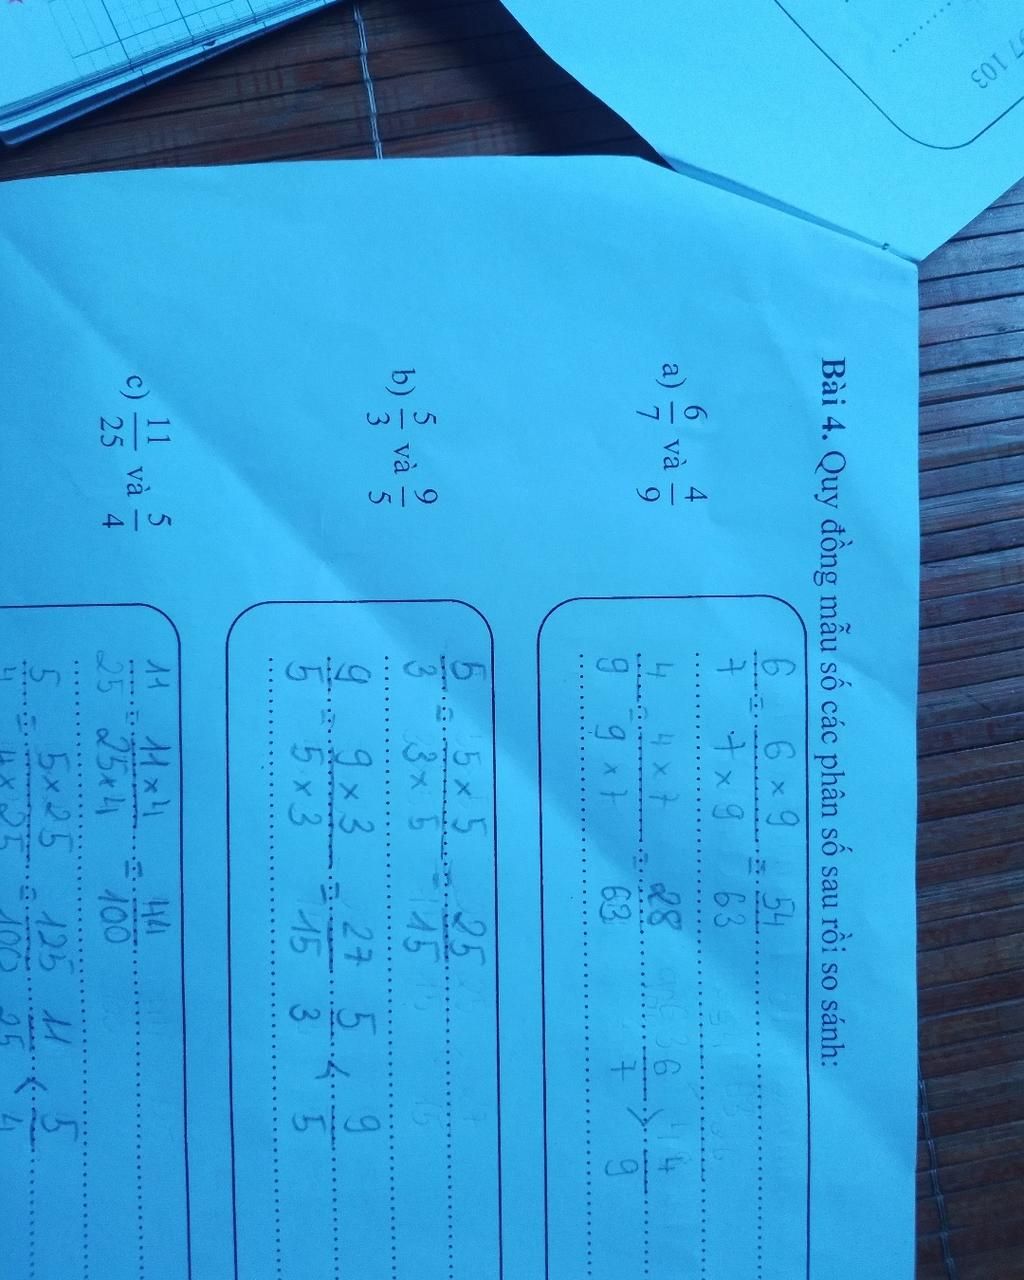 7 103
Bài 4. Quy đồng mẫu số các phân số sau rồi so sánh:
a) 6/7 và 4/9
6/7 = 6 × 9/7 × 9 = 54/63
4/9 = 4 × 7/9 × 7 = 28/63 6/7 > 4/9
b) 5/3 và 9/5
5/3 = 5 × 5/3 × 5 = 25/15
9/5 = 9 × 3/5 × 3 = 27/15 5/3 < 9/5
c) 11/25 và 5/4
11/25 = 11 × 4/25 × 4 = 44/100
5/4 = 5 × 25/4 × 25 = 125/100 11/25 < 5/4